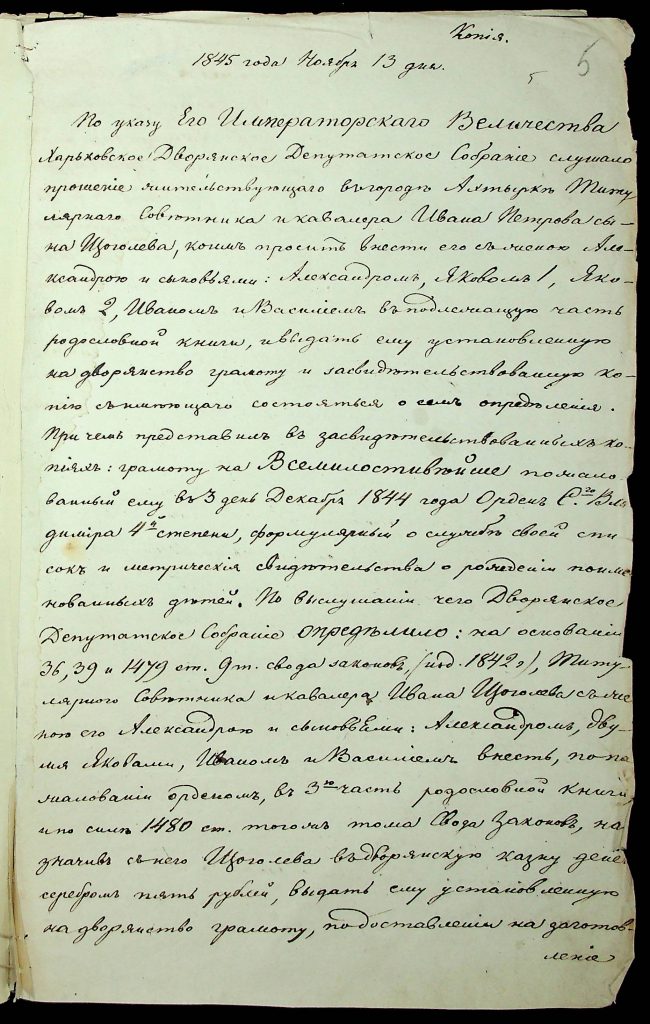 Копія.
5
5
1845 года Ноября 13 дня.
По указу Его Императорскаго Величества
Харьковское Дворянское Депутатское Собраніе слушало
прошеніе жительствующаго въ городѣ Ахтыркѣ Титу-
лярнаго Совѣтника и кавалера Ивана Петрова сы-
на Щоголева, коимъ проситъ внести его съ женою Але-
ксандрою и сыновьями: Александромъ, Яковомъ 1, Яко-
вомъ 2, Иваномъ и Василіемъ въ подлежащую часть
родословной книги, и выдать ему установленную
на дворянство грамоту и засвидѣтельствованную ко-
пію съ имѣющаго состояться о семъ опредѣленія.
При чемъ представилъ въ засвидѣтельствованныхъ ко-
піяхъ: грамоту на Всемилостивѣйше пожало
ванный ему въ 3 день Декабря 1844 года Орденъ Св. Вла
диміра 4й степени, формулярный о службѣ своей спи
сокъ и метрическія свидѣтельства о рожденіи поиме
нованныхъ дѣтей. По выслушаніи чего Дворянское
Депутатское Собраніе опредѣлило: на основаніи
36, 39 и 1479 ст. 9 т. свода законовъ (изд. 1842 г), Титу-
лярного Совѣтника и кавалера Ивана Щоголева съ же
ною его Александрою и сыновьями: Александромъ, дву
мя Яковами, Иваномъ и Василіемъ внесть, по по
жалованіи орденомъ, въ 3ю часть родословной книги,
и по силѣ 1480 ст. тогожъ тома Свода Законовъ, на
значивъ съ него Щоголева въ дворянскую казну денег
серебромъ пять рублей, выдать ему установленную
на дворянство грамоту, по доставленіи на заготов-
леніе